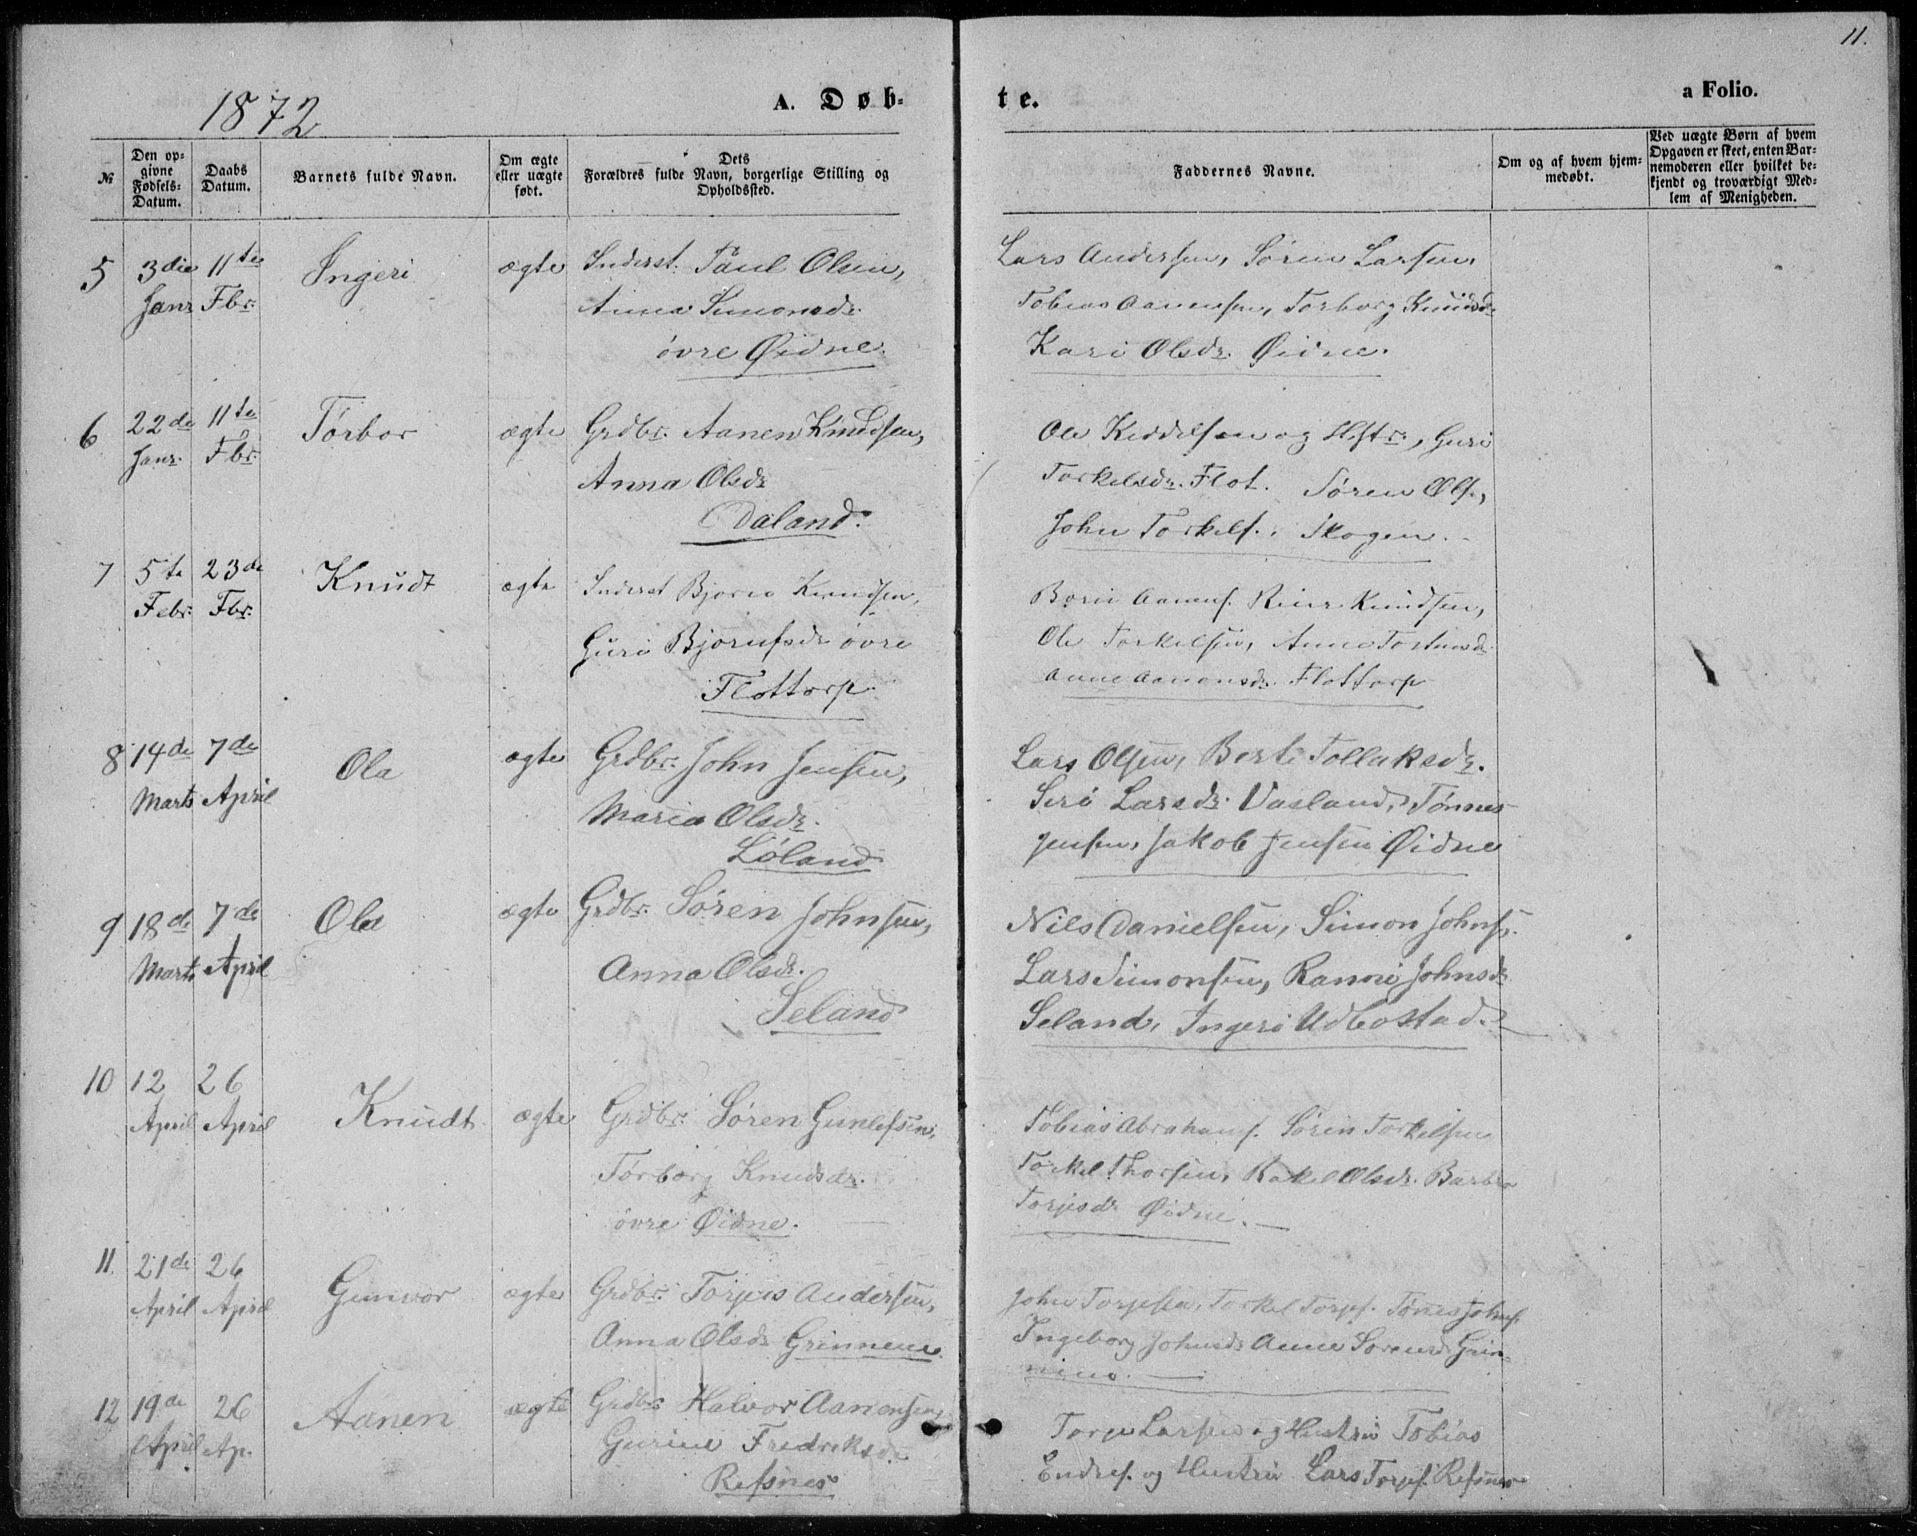 11.
1872
A. Døb-
te.
a Folio.
№
Den op-
givne
Fødsels-
Datum.
Daabs
Datum.
Barnets fulde Navn.
Om ægte
eller uægte
født.
Dets
Forældres fulde Navn, borgerlige Stilling og
Opholdssted.
Faddernes Navne.
Om og af hvem hjem-
medøbt.
Ved uægte Børn af hvem
Opgaven er skeet, enten Bar-
nemoderen eller hvilket be-
kjendt og troværdigt Med-
lem af Menigheden.
5 3die 11te Ingeri ægte Inderst. Paul Olsen,
Janr Fbr. Anna Simonsdr.
øvre Øidne.
Lars Andersen, Søren Larsen,
Tobias Aanensen, Torborg Knudsdr
Kari Olsdr. Øidne.
6 22de 11te Tørbor ægte Grdbr. Aanen Knudsen,
Janr. Fbr. Anna Olsdr
Daland.
Ole Keddelsen og Hstr., Guri
Torkelsdr. Flot. Søren Ols.,
John Torkelf. Skogen.
7 5te 23de Knudt ægte Inderst Bjorn Knudsen,
Febr. Fbr. Guri Bjornfsdr øvre
Flottorp
Aanenf. Knudsen,
Ole Torkelsen, Anne Tostensd
Anne Aanensdr. Flottorp
8 14de 7de Ola ægte Grdbr. John Jensen,
Marts April Maria Olsdr.
Løland
Lars Olsen, Berte Tollaksdr.
Siri Larsdr. Vasland, Tønnes
Jensen, Jakob Jensen Øidne
9 18de 7de Ola ægte Grdbr. Søren Johnsen,
Marts April Anna Olsdr.
Seland
Nils Danielsen, Simon Johns.
Lars Simonsen, Ranni Johnsdr
Seland, Ingeri Udbostad.
10 12 26 Knudt ægte Grdbr. Søren Gunlefsen,
April April Tørborg Knudsdr.
øvre Øidne.
Tobias Abrahamf. Søren Torkelsen
Torkel Thorsen, Rakel Olsdr. Barbro
Torjesdr Øidne.
11. 21de 26 Gunvor ægte Grdbr. Torjus Andersen,
April April Anna Olsdr Grinnene
John Torjesen, Torkel Torjef. Tønes Johnf.
Ingeborg Johnsdr Anne Sørensdr Grin-
nene.
12 19de 26 Aanen ægte Grdbr Halvor Aanensen,
April Ap. Gurine Fredriksdr
Refsnes
Torje Larsen og Hustru Tobias
Endref. og Hustru Lars Torjef. Refsnes